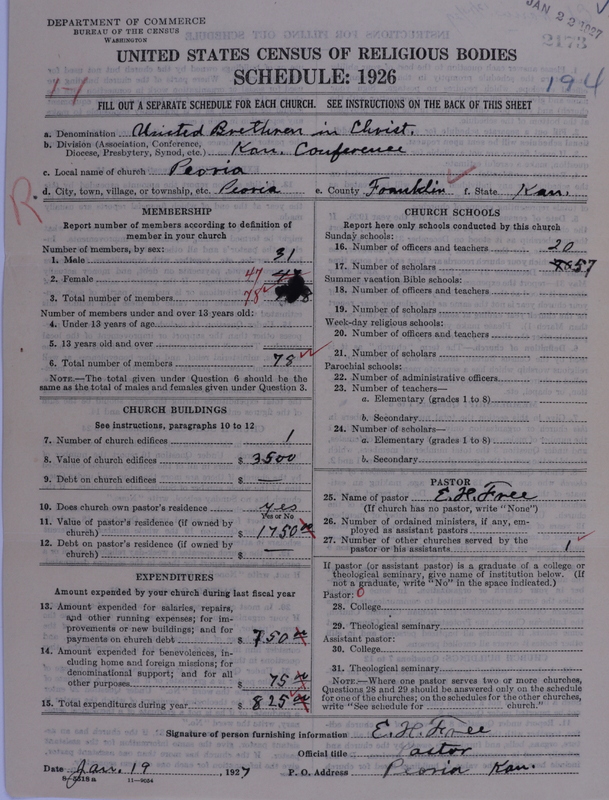 DEPARTMENT OF COMMERCE
BUREAU OF THE CENSUS
WASHINGTON
JAN 22 1927
2173
UNITED STATES CENSUS OF RELIGIOUS BODIES
SCHEDULE: 1926
194
FILL OUT A SEPARATE SCHEDULE FOR EACH CHURCH. SEE INSTRUCTIONS ON THE BACK OF THIS SHEET
a. Denomination United Brethren in Christ.
b. Division (Association, Conference, Diocese, Presbytery, Synod, etc.) Kan. Conference
c. Local name of church Peoria
d. City, town, village, or township, etc. Peoria e. County Franklin f. State Kan.
R
MEMBERSHIP
Report number of members according to definition of
member in your church
Number of members, by sex:
1. Male 31
2. Female 47
3. Total number of members 78
Number of members under and over 13 years old:
4. Under 13 years of age
5. 13 years old and over
6. Total number of members 78
NOTE.—The total given under Question 6 should be the
same as the total of males and females given under Question 3.
CHURCH BUILDINGS
See instructions, paragraphs 10 to 12
7. Number of church edifices 1
8. Value of church edifices $ 3500
9. Debt on church edifices $ —
10. Does church own pastor's residence yes
Yes or No
11. Value of pastor's residence (if owned by
church) $ 1750 00
12. Debt on pastor's residence (if owned by
church) $ —
EXPENDITURES
Amount expended by your church during last fiscal year
13. Amount expended for salaries, repairs,
and other running expenses; for im-
provements or new buildings; and for
payments on church debt $ 750 00
14. Amount expended for benevolences, in-
cluding home and foreign missions; for
denominational support; and for all
other purposes $ 75 00
15. Total expenditures during year $ 825 00
CHURCH SCHOOLS
Report here only schools conducted by this church
Sunday schools:
16. Number of officers and teachers 20
17. Number of scholars 57
Summer vacation Bible schools:
18. Number of officers and teachers
19. Number of scholars
Week-day religious schools:
20. Number of officers and teachers
21. Number of scholars
Parochial schools:
22. Number of administrative officers
23. Number of teachers—
a. Elementary (grades 1 to 8)
b. Secondary
24. Number of scholars—
a. Elementary (grades 1 to 8)
b. Secondary
PASTOR
25. Name of pastor E. H. Free
(If church has no pastor, write "None")
26. Number of ordained ministers, if any, em-
ployed as assistant pastors
27. Number of other churches served by the
pastor or his assistants 1
If pastor (or assistant pastor) is a graduate of a college or
theological seminary, give name of institution below. (If
not a graduate, write "No" in the space indicated.)
Pastor: 0
28. College
29. Theological seminary
Assistant pastor:
30. College
31. Theological seminary
NOTE.—Where one pastor serves two or more churches,
Questions 28 and 29 should be answered only on the schedule
for one of the churches; on the schedules for the other churches,
write "See schedule for church."
Signature of person furnishing information E. H. Free
Official title Pastor
Date Jan. 19, 1927 P. O. Address Peoria Kan.
8—3518a 11—9034